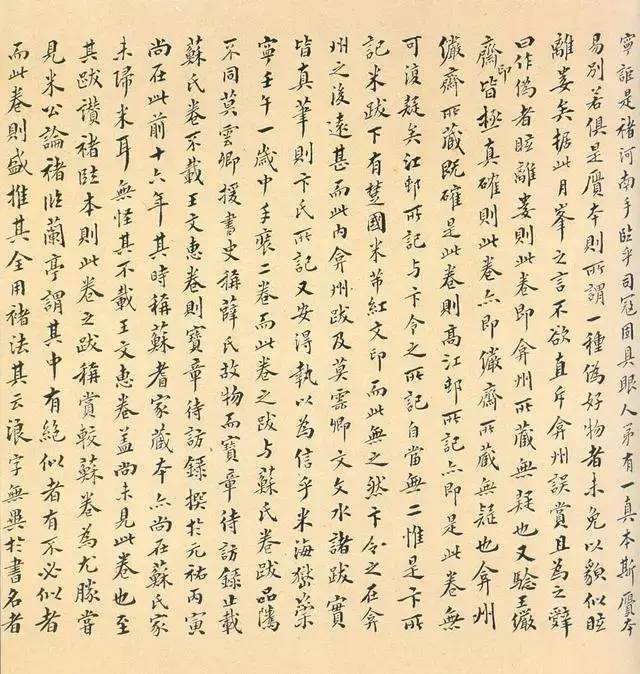 寧誰是褚河南手臨乎司寇固具眼人弟有一真本斯贗本
易別若俱是贗本則所謂一種偽好物者未免以貌似眩
離婁矣据此月峯之言不欲直斥弇州誤賞且為之辭
曰作偽者眩離婁則此卷即弇州所藏無疑也又騐王儼
齋印皆極真確則此卷亦即儼齋所藏無疑也弇州
儼齋所藏既確是此卷則高江邨所記亦即是此卷無
可復疑矣江邨所記与卞令之所記自當無二惟是卞所
記米跋下有楚國米芾紅文印而此無之然卞令之在弇
州之後遠甚而此內弇州跋及莫雲卿文文水諸跋實
皆真筆則卞氏所記又安得執以為信乎米海嶽崇
寧壬午一歲中手裝二卷而此卷之跋与蘇氏卷跋品隲
不同莫雲卿援書史稱薛氏故物而寶章待訪錄止載
蘇氏卷不載王文惠卷則寶章待訪錄撰於元祐丙寅
尚在此前十六年其時稱蘇耆家藏本亦尚在蘇氏家
未歸米耳無怪其不載王文惠卷蓋尚未見此卷也至
其跋讚褚臨本則此卷之跋稱賞較蘇卷為尤勝嘗
見米公論褚臨蘭亭謂其中有絕似者有不必似者
而此卷則盛推其全用褚法其云浪字無異於書名者